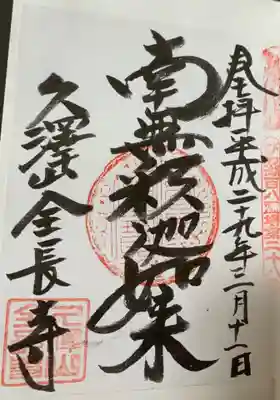 奉拝 平成二十九年二月十一日
南無釈迦如来
久澤山 全長寺